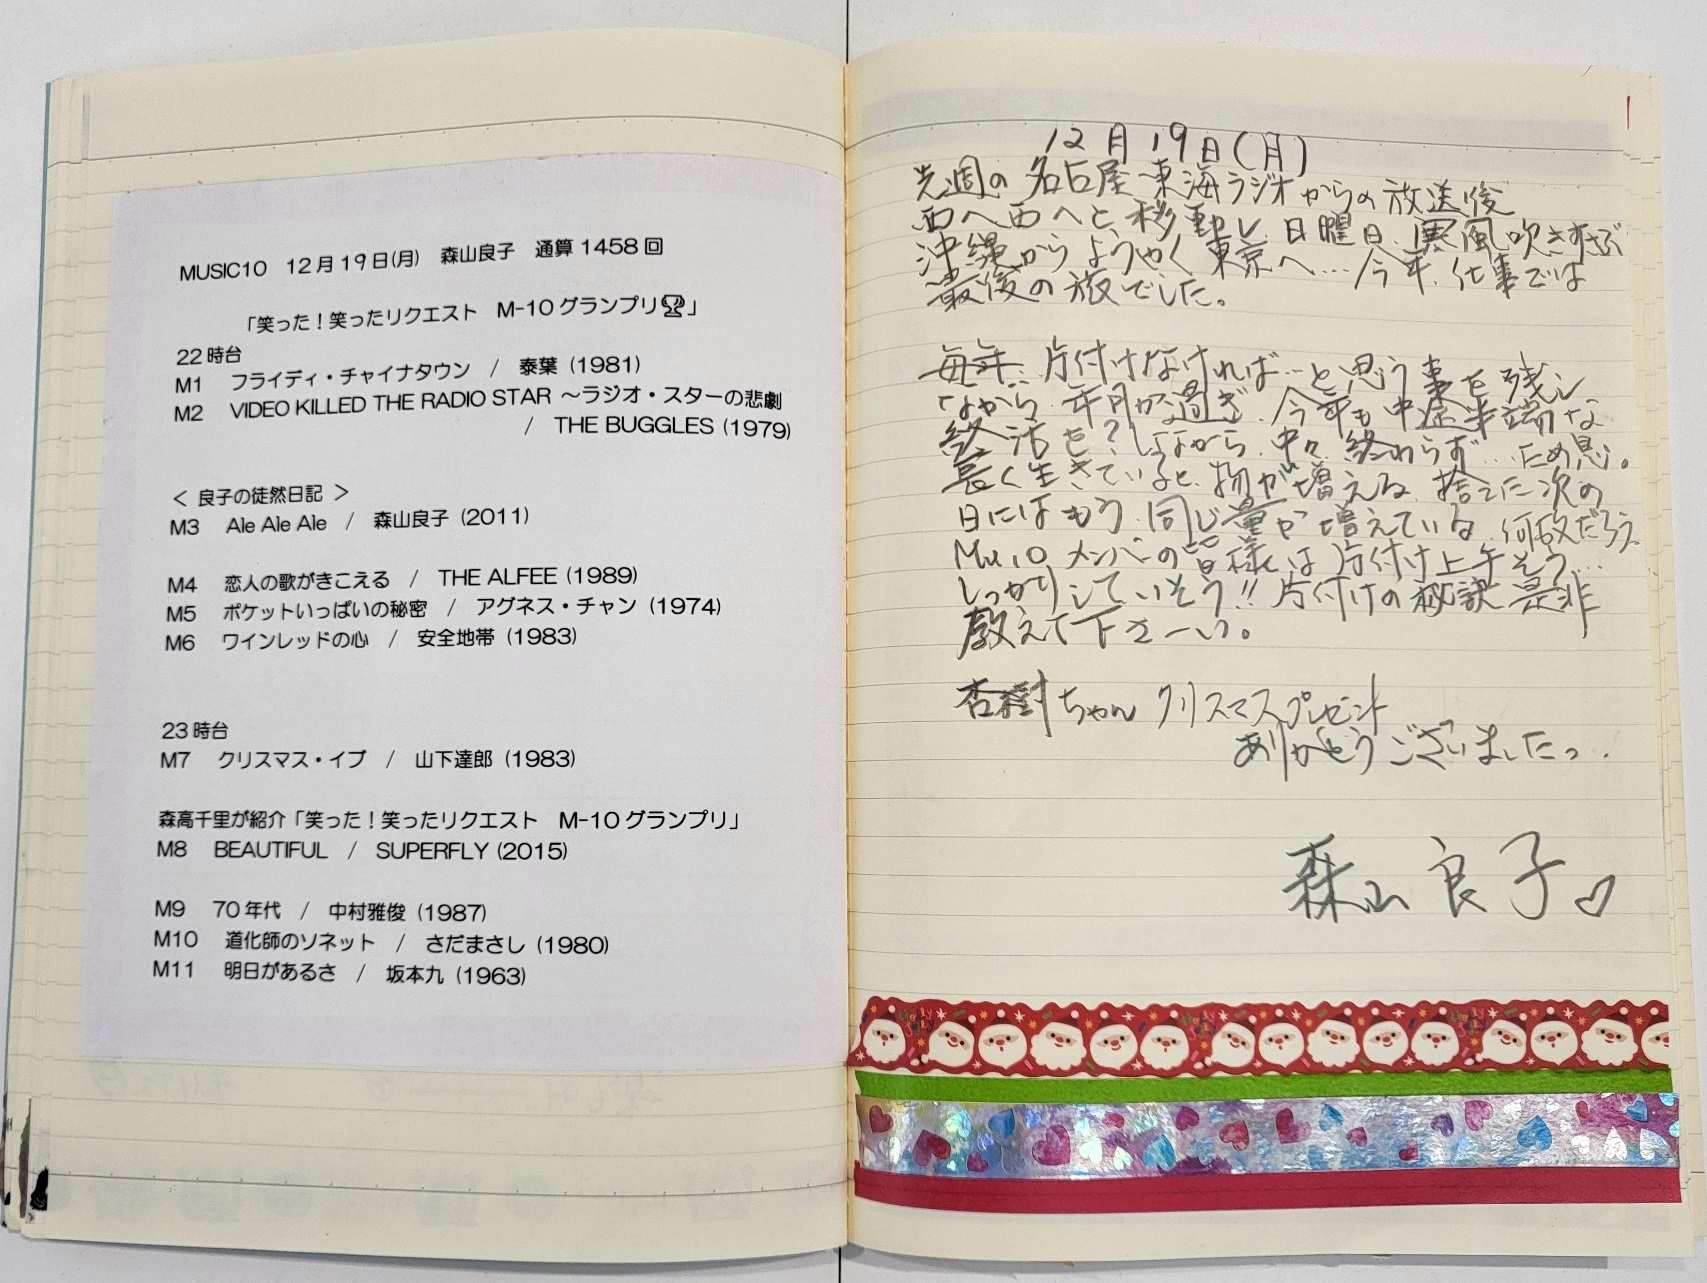 MUSIC10　12月19日(月)　森山良子　通算1458回
「笑った！笑ったリクエスト　M-10グランプリ🏆」
22時台
M1　フライディ・チャイナタウン　/　泰葉（1981)
M2　VIDEO KILLED THE RADIO STAR ～ラジオ・スターの悲劇
/　THE BUGGLES（1979)
＜ 良子の徒然日記 ＞
M3　Ale Ale Ale　/　森山良子（2011)
M4　恋人の歌がきこえる　/　THE ALFEE（1989)
M5　ポケットいっぱいの秘密　/　アグネス・チャン（1974)
M6　ワインレッドの心　/　安全地帯（1983)
23時台
M7　クリスマス・イブ　/　山下達郎（1983)
森高千里が紹介「笑った！笑ったリクエスト　M-10グランプリ」
M8　BEAUTIFUL　/　SUPERFLY（2015)
M9　70年代　/　中村雅俊（1987)
M10　道化師のソネット　/　さだまさし（1980)
M11　明日があるさ　/　坂本九（1963)
12月19日(月)
先週の名古屋東海ラジオからの放送後
西へ西へと、移動し、日曜日、寒風吹きすさぶ
沖縄からようやく東京へ…今年、仕事では
最後の旅でした。
毎年、片付けなければ…と思う事を残し
ながら、年月が過ぎ、今年も中途半端な
終活を？しながら、中々終わらず…ため息。
長く生きていると、物が増える、捨てた次の
日にはもう、同じ量が増えている、何故だろう、
Mu10メンバーの皆様は片付け上手そう…
しっかりしていそう!!片付けの秘訣是非
教えて下さーい。
杏樹ちゃん クリスマスプレゼント
ありがとうございましたっ..
森山良子♡